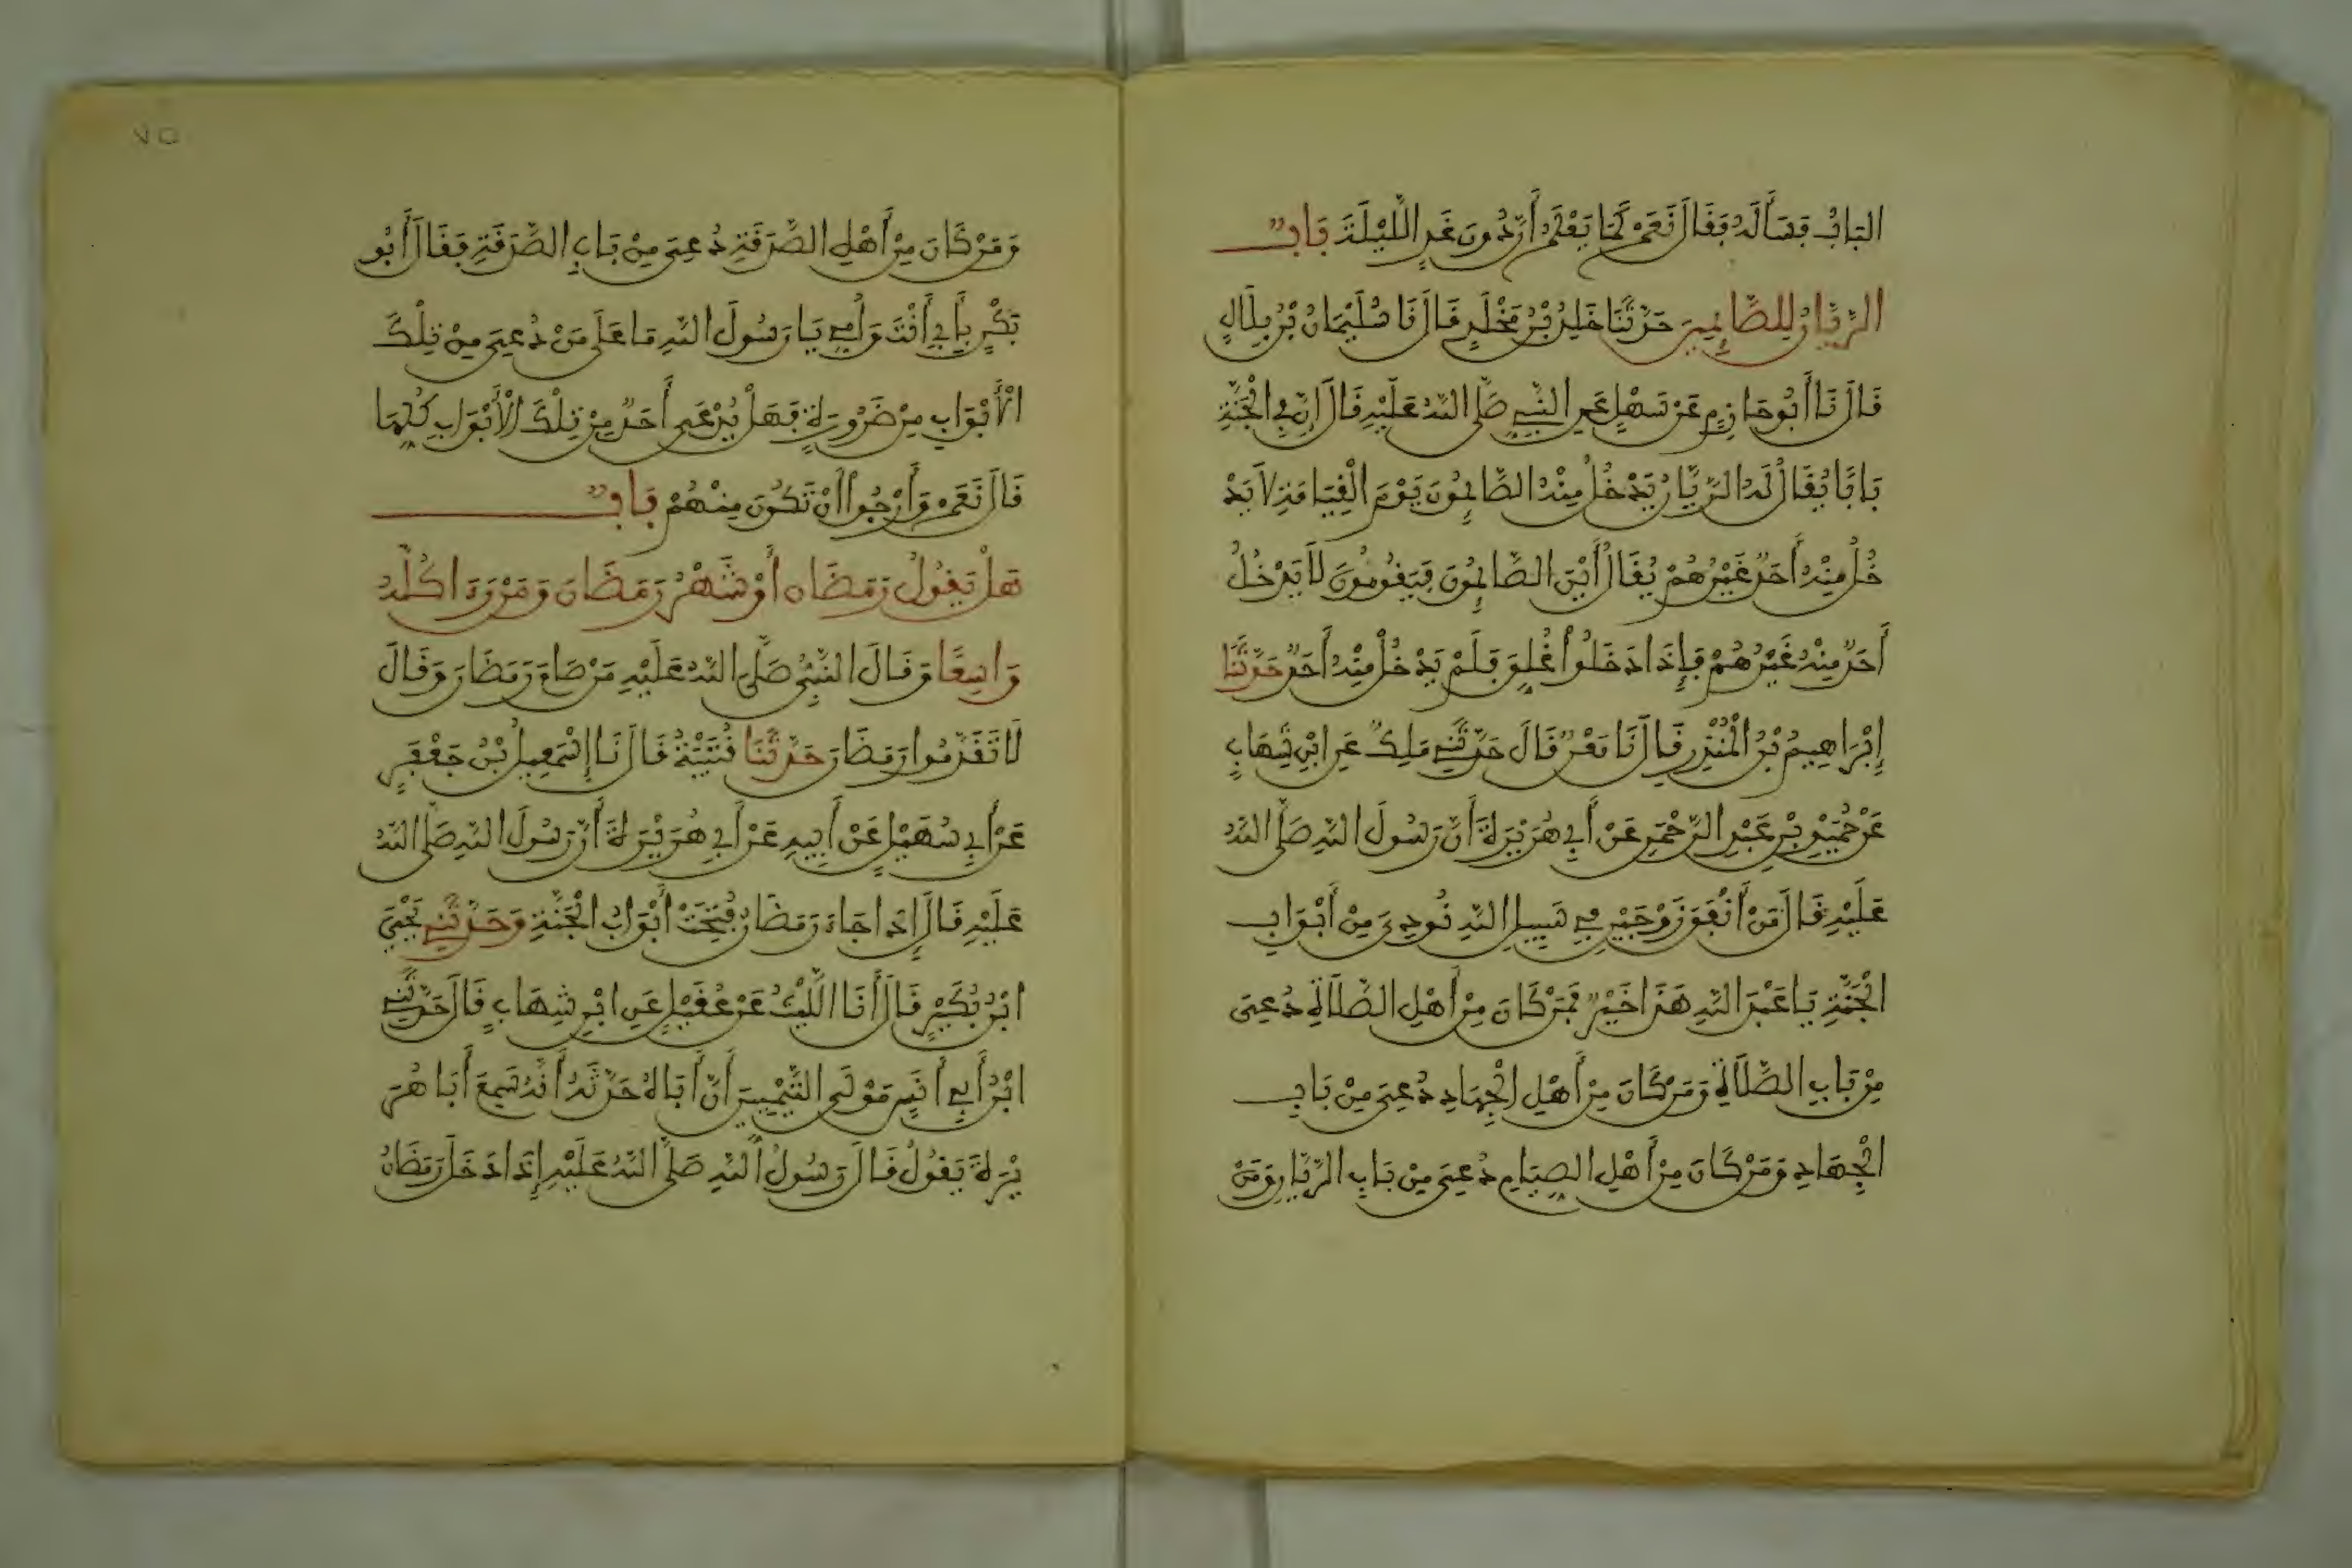 البَابُ فَسَأَلَهُ فَقَالَ نَعَمْ كَمَا يَعْلَمُ أَنَّ دُونَ غَدٍ اللَّيْلَةَ بَابٌ
الرَّيَّانُ لِلصَّائِمِينَ حَدَّثَنَا خَلِدُ بْنُ مَخْلَدٍ قَالَ نَا سُلَيْمَانُ بْنُ بِلَالٍ
قَالَ نَا أَبُو حَازِمٍ عَنْ سَهْلٍ عَنِ النَّبِيِّ صَلَّى اللَّهُ عَلَيْهِ قَالَ إِنَّ فِي الْجَنَّةِ
بَابًا يُقَالُ لَهُ الرَّيَّانُ يَدْخُلُ مِنْهُ الصَّائِمُونَ يَوْمَ الْقِيَامَةِ لَا يَدْ
خُلُ مِنْهُ أَحَدٌ غَيْرُهُمْ يُقَالُ أَيْنَ الصَّائِمُونَ فَيَقُومُونَ لَا يَدْخُلُ
أَحَدٌ مِنْهُ غَيْرُهُمْ فَإِذَا دَخَلُوا أُغْلِقَ فَلَمْ يَدْخُلْ مِنْهُ أَحَدٌ حَدَّثَنَا
إِبْرَاهِيمُ بْنُ الْمُنْذِرِ قَالَ نَا مَعْنٌ قَالَ حَدَّثَنِي مَلِكٌ عَنِ ابْنِ شِهَابٍ
عَنْ حُمَيْدِ بْنِ عَبْدِ الرَّحْمَنِ عَنْ أَبِي هُرَيْرَةَ أَنَّ رَسُولَ اللَّهِ صَلَّى اللَّهُ
عَلَيْهِ قَالَ مَنْ أَنْفَقَ زَوْجَيْنِ فِي سَبِيلِ اللَّهِ نُودِيَ مِنْ أَبْوَابِ
الْجَنَّةِ يَا عَبْدَ اللَّهِ هَذَا خَيْرٌ فَمَنْ كَانَ مِنْ أَهْلِ الصَّلَاةِ دُعِيَ
مِنْ بَابِ الصَّلَاةِ وَمَنْ كَانَ مِنْ أَهْلِ الْجِهَادِ دُعِيَ مِنْ بَابِ
الْجِهَادِ وَمَنْ كَانَ مِنْ أَهْلِ الصِيَامِ دُعِيَ مِنْ بَابِ الرَّيَّانِ وَمَنْ
٧٥
وَمَنْ كَانَ مِنْ أَهْلِ الصَّدَقَةِ دُعِيَ مِنْ بَابِ الصَّدَقَةِ فَقَالَ أَبُو
بَكْرٍ بِأَبِي أَنْتَ وَأُمِّي يَا رَسُولَ اللَّهِ مَا عَلَى مَنْ دُعِيَ مِنْ تِلْكَ
الْأَبْوَابِ مِنْ ضَرُورَةٍ فَهَلْ يُدْعَى أَحَدٌ مِنْ تِلْكَ الْأَبْوَابِ كُلِّهَا
قَالَ نَعَمْ وَأَرْجُوا أَنْ تَكُونَ مِنْهُمْ بَابٌ
هَلْ يَقُولُ رَمَضَان أَوْ شَهْرُ رَمَضَانَ وَمَنْ رَءَا كُلَّهُ
وَاسِعًا وَقَالَ النَّبِيُّ صَلَّى اللَّهُ عَلَيْهِ مَنْ صَامَ رَمَضَانَ وَقَالَ
لَا تَقَدَّمُوا رَمَضَانَ حَدَّثَنَا قُتَيْبَةُ قَالَ نَا إِسْمَعِيلُ بْنُ جَعْفَرٍ
عَنْ أَبِي سُهَيْلٍ عَنْ أَبِيهِ عَنْ أَبِي هُرَيْرَةَ أَنَّ رَسُولَ اللَّهِ صَلَّى اللَّهُ
عَلَيْهِ قَالَ إِذَا جَاءَ رَمَضَانُ فُتِحَتْ أَبْوَابُ الْجَنَّةِ وَحَدَّثَنِي يَحْيَى
ابْنُ بُكَيْرٍ قَالَ أَنَا اللَّيْثُ عَنْ عُقَيْلٍ عَنِ ابْنِ شِهَابٍ قَالَ حَدَّثَنِي
ابْنُ أَبِي أَنَسٍ مَوْلَى التَّيْمِيِّينَ أَنَّ أَبَاهُ حَدَّثَهُ أَنَّهُ سَمِعَ أَبَا هُرَ
يْرَةَ يَقُولُ قَالَ رَسُولُ اللَّهِ صَلَّى اللَّهُ عَلَيْهِ إِذَا دَخَلَ رَمَضَانُ